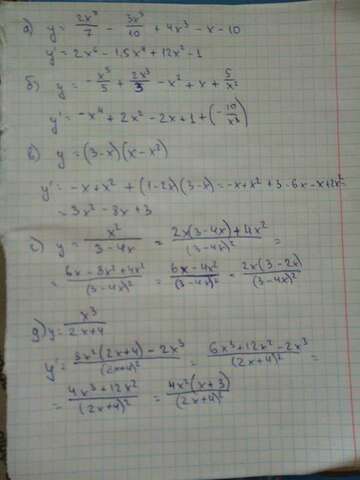 а) y = 2x⁷/7 - 3x⁵/10 + 4x³ - x - 10
y' = 2x⁶ - 1,5x⁴ + 12x² - 1
б) y = -x⁵/5 + 2x³/3 - x² + x + 5/x²
y' = -x⁴ + 2x² - 2x + 1 + (-10/x³)
в) y = (3-x)(x-x²)
y' = -x + x² + (1-2x)(3-x) = -x + x² + 3 - 6x - x + 2x² =
= 3x² - 8x + 3
г) y = x²/(3-4x) = (2x(3-4x) + 4x²)/(3-4x)² =
= (6x - 8x² + 4x²)/(3-4x)² = (6x - 4x²)/(3-4x)² = 2x(3-2x)/(3-4x)²
д) y = x³/(2x+4)
y' = (3x²(2x+4) - 2x³)/(2x+4)² = (6x³ + 12x² - 2x³)/(2x+4)² =
= (4x³ + 12x²)/(2x+4)² = 4x²(x+3)/(2x+4)²